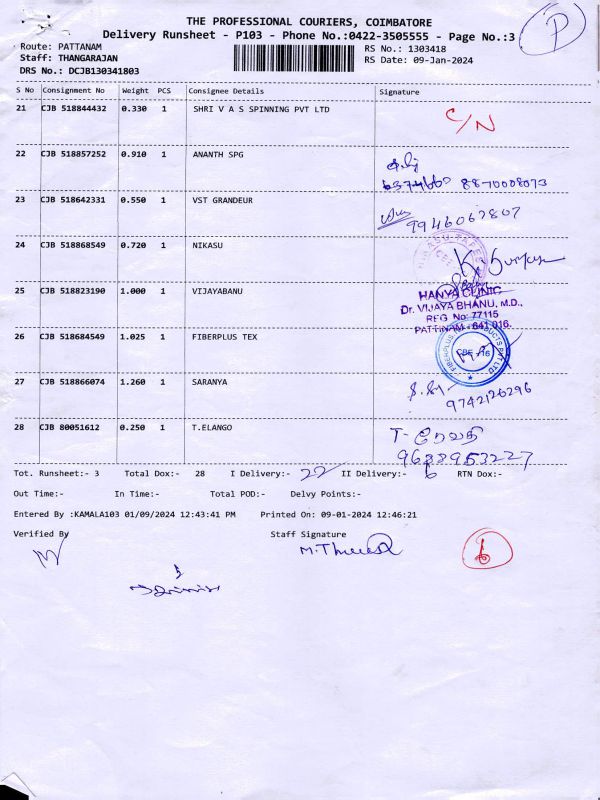 THE PROFESSIONAL COURIERS, COIMBATORE
Delivery Runsheet - P103 - Phone No.:0422-3505555 - Page No.:3
P
Route: PATTANAM
RS No.: 1303418
Staff: THANGARAJAN
RS Date: 09-Jan-2024
DRS No.: DCJB130341803
S No Consignment No Weight PCS Consignee Details Signature
21 CJB 518844432 0.330 1 SHRI V A S SPINNING PVT LTD C/N
22 CJB 518857252 0.910 1 ANANTH SPG
8870008073
23 CJB 518642331 0.550 1 VST GRANDEUR
9946062807
24 CJB 518868549 0.720 1 NIKASU
25 CJB 518823190 1.000 1 VIJAYABANU
HANYA CLINIC
Dr. VIJAYA BHANU, M.D.,
REG No: 77115
PATTINAM - 641 016.
26 CJB 518684549 1.025 1 FIBERPLUS TEX
CBE -16
27 CJB 518866074 1.260 1 SARANYA
9742126296
28 CJB 80051612 0.250 1 T.ELANGO
T- ரேவதி
9688953227
Tot. Runsheet:- 3 Total Dox:- 28 I Delivery:- 22 II Delivery:- 6 RTN Dox:-
Out Time:- In Time:- Total POD:- Delvy Points:-
Entered By :KAMALA103 01/09/2024 12:43:41 PM Printed On: 09-01-2024 12:46:21
Verified By Staff Signature